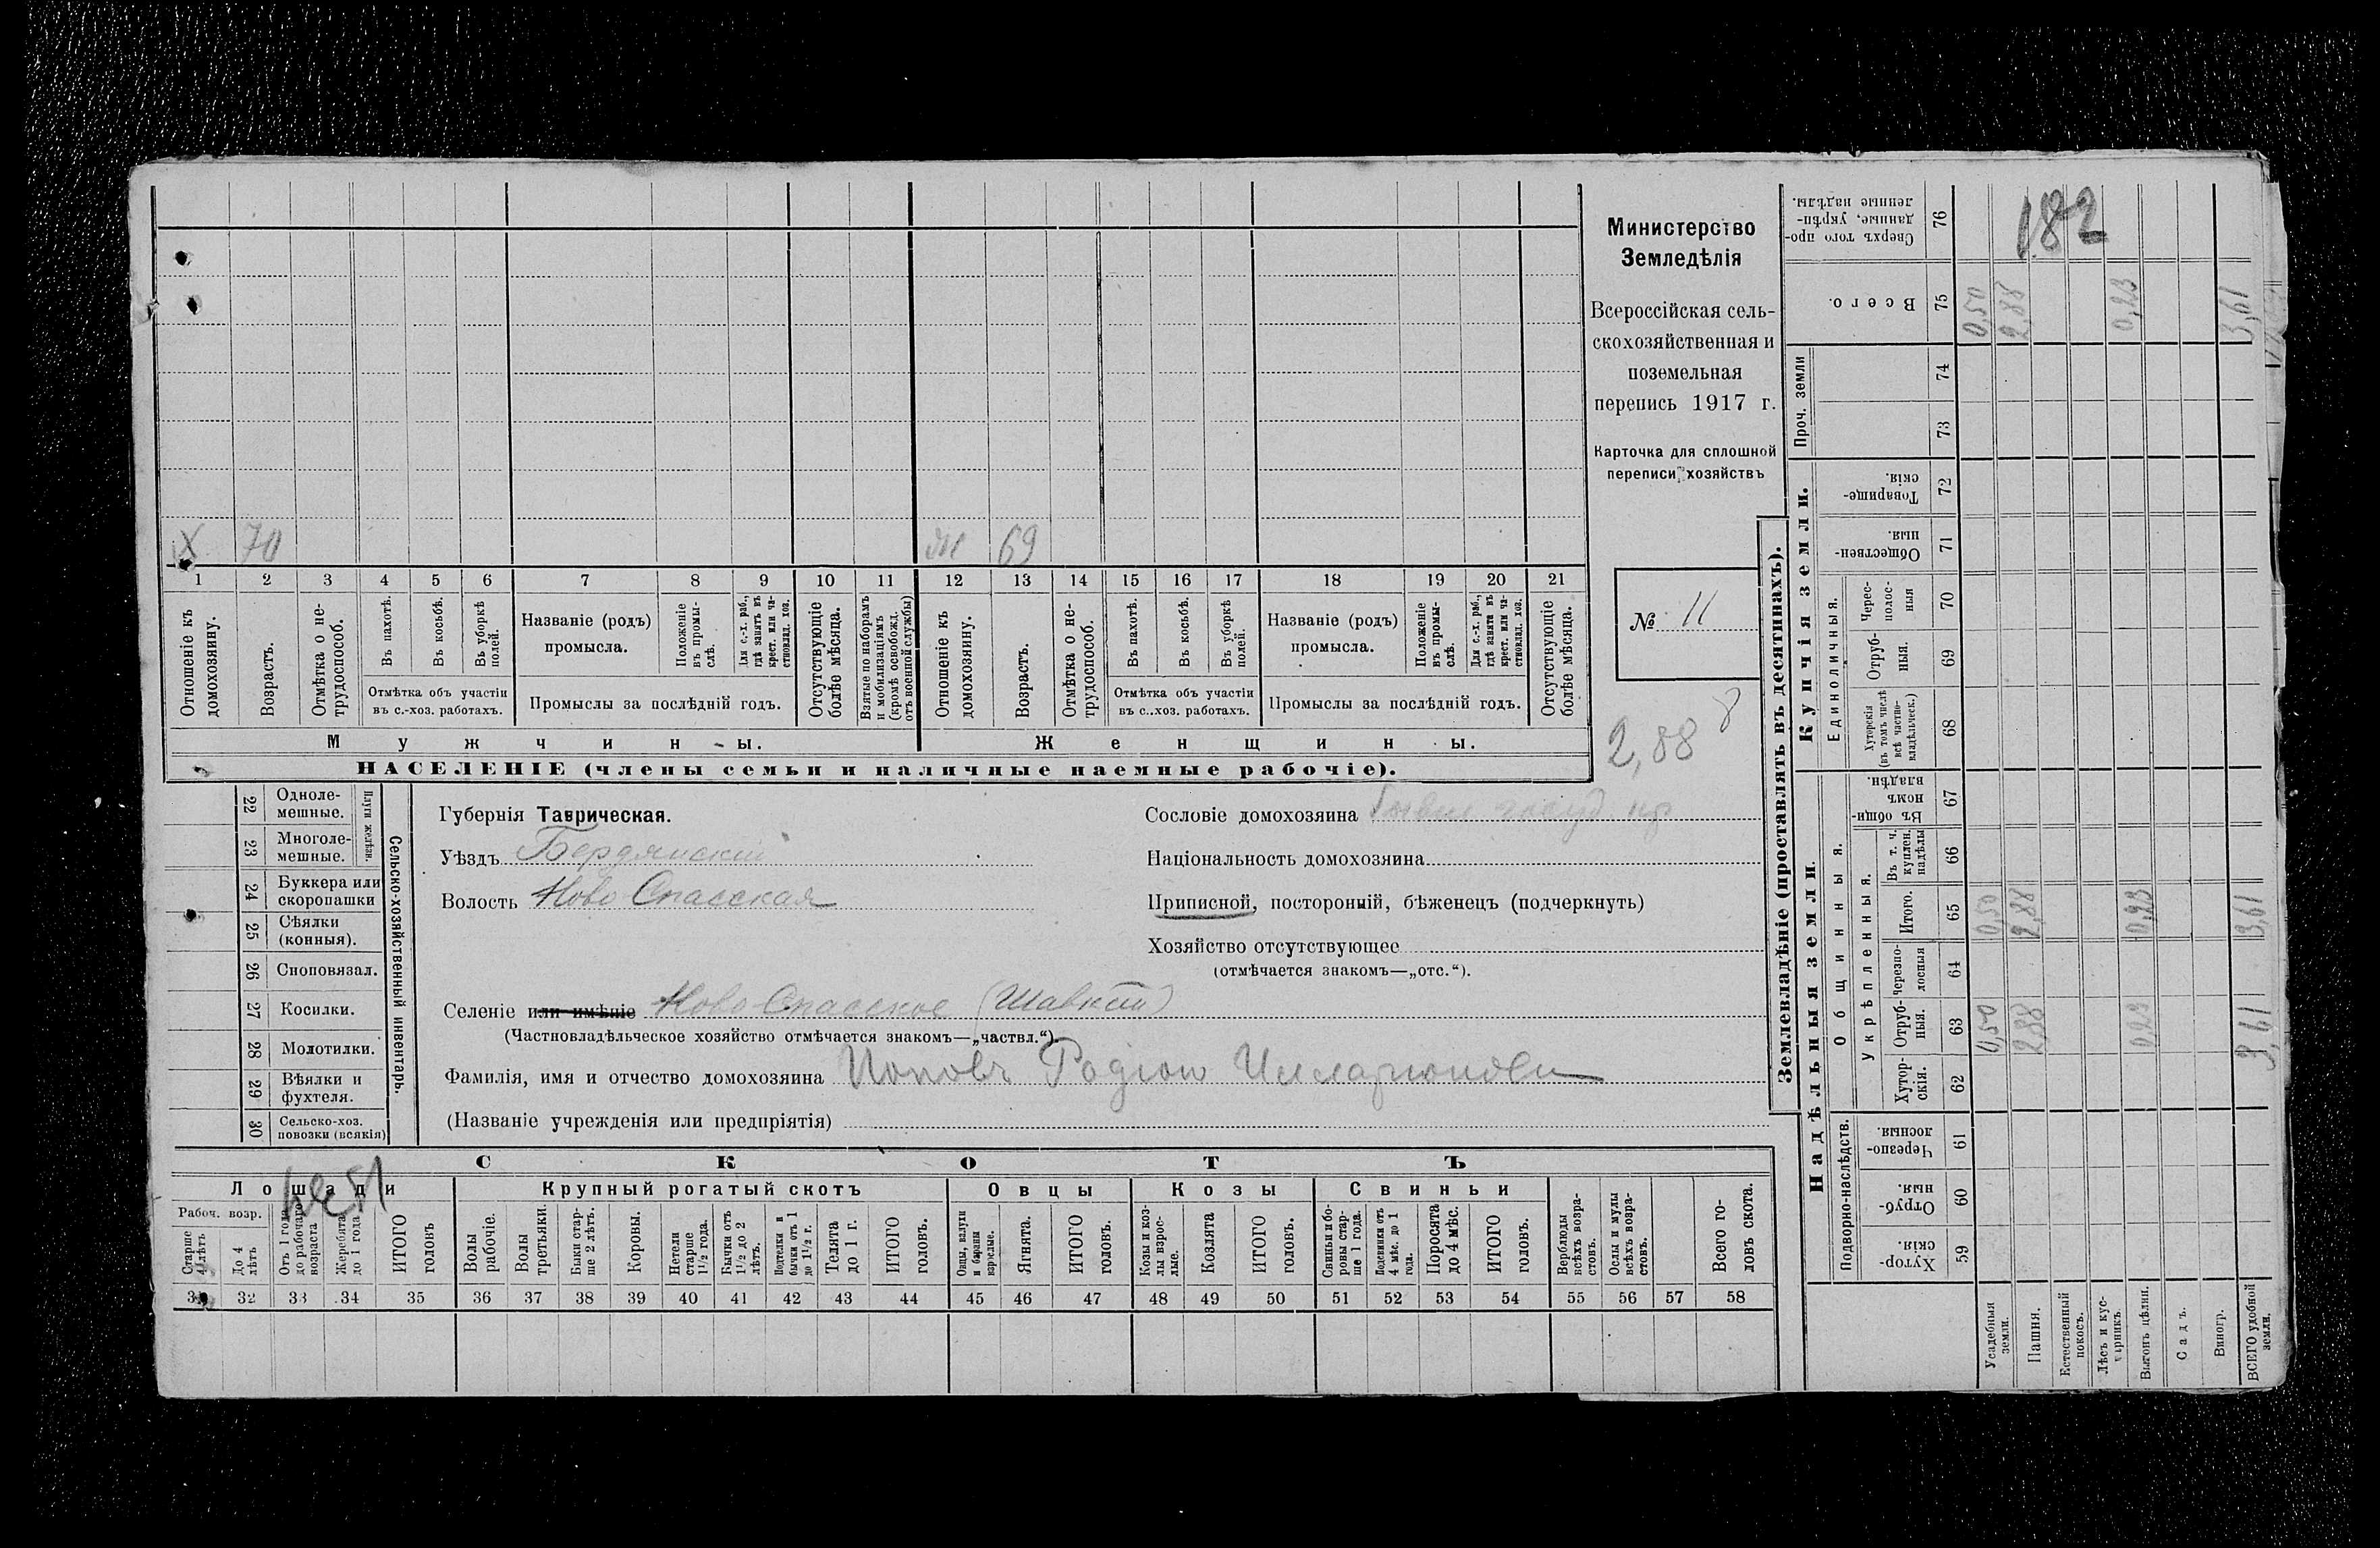 Министерство
Земледѣлія
Всероссійская сель-
скохозяйственная и
поземельная
перепись 1917 г.
Карточка для сплошной
переписи хозяйствъ
№ 11
2,88 8
X 70
Ж 69
1 2 3 4 5 6 7 8 9 10 11 12 13 14 15 16 17 18 19 20 21
Отношеніе къ домохозяину.
Возрастъ.
Отмѣтка о не-трудоспособ.
Въ пахотѣ.
Въ косьбѣ.
Въ уборкѣ полей.
Отмѣтка объ участіи въ с.-хоз. работахъ.
Названіе (родъ) промысла.
Положеніе въ промы-слѣ.
Для с.-х. раб., гдѣ занятъ въ крест. или ча-стновлад. хоз.
Промыслы за послѣдній годъ.
Отсутствующіе болѣе мѣсяца.
Взятые по наборамъ и мобилизаціямъ (кромѣ освобожд. отъ военной службы)
Отношеніе къ домохозяину.
Возрастъ.
Отмѣтка о не-трудоспособ.
Въ пахотѣ.
Въ косьбѣ.
Въ уборкѣ полей.
Отмѣтка объ участіи въ с..хоз. работахъ.
Названіе (родъ) промысла.
Положеніе въ промы-слѣ.
Для с.-х. раб., гдѣ занята въ крест. или ча-стновлад. хоз.
Промыслы за послѣдній годъ.
Отсутствующіе болѣе мѣсяца.
Мужчины.
Женщины.
НАСЕЛЕНІЕ (члены семьи и наличные наемные рабочіе).
22 Одноле-мешные.
23 Многоле-мешные.
Плуги желѣзн.
24 Буккера или скоропашки
25 Сѣялки (конныя).
26 Сноповязал.
27 Косилки.
28 Молотилки.
29 Вѣялки и фухтеля.
30 Сельско-хоз. повозки (всякія)
Сельско-хозяйственный инвентарь.
Губернія Таврическая.
Уѣздъ Бердянскій
Волость Ново Спасская
Сословіе домохозяина бывш. госуд. кр.
Національность домохозяина
Приписной, посторонній, бѣженецъ (подчеркнуть)
Хозяйство отсутствующее
(отмѣчается знакомъ—„отс.“).
Селеніе или имѣніе Ново-Спасское
(Частновладѣльческое хозяйство отмѣчается знакомъ—„частвл.“).
Фамилія, имя и отчество домохозяина Поповъ Родіонъ Илларіонови
(Названіе учрежденія или предпріятія)
СКОТЪ
нѣт
Лошади
Крупный рогатый скотъ
Овцы
Козы
Свиньи
Рабоч. возр.
Старше 4 лѣтъ
До 4 лѣтъ
Отъ 1 года до рабочаго возраста
Жеребята до 1 года
ИТОГО головъ
Волы рабочіе.
Волы третьяки.
Быки стар-ше 2 лѣтъ.
Коровы.
Нетели старше 1½ года.
Бычки отъ 1½ до 2 лѣтъ.
Подтелки и бычки отъ 1 до 1½ г.
Телята до 1 г.
ИТОГО головъ.
Овцы, валухи и бараны взрослые.
Ягнята.
ИТОГО головъ.
Козы и коз-лы взрос-лые.
Козлята
ИТОГО головъ.
Свиньи и бо-ровы стар-ше 1 года.
Подсвинки отъ 4 мѣс. до 1 года.
Поросята до 4 мѣс.
ИТОГО головъ.
Верблюды всѣхъ возра-стовъ.
Ослы и мулы всѣхъ возра-стовъ.
Всего го-ловъ скота.
31 32 33 34 35 36 37 38 39 40 41 42 43 44 45 46 47 48 49 50 51 52 53 54 55 56 57 58
Землевладѣніе (проставлять въ десятинахъ).
Надѣльныя земли.
Купчія земли.
Проч. земли
Подворно-наслѣдств.
Общинныя.
Укрѣпленныя.
Единоличныя.
Хутор-скія. 59
Отруб-ныя. 60
Черезпо-лосныя. 61
Хутор-скія. 62
Отруб-ныя. 63
Черезпо-лосныя 64
Итого. 65
Въ т. ч. куплен. надѣлы 66
Въ общи-номъ владѣн. 67
Хуторскія (въ томъ числѣ всѣ частно-владѣльческ.) 68
Отруб-ныя. 69
Черес-полос-ныя 70
Обществен-ныя. 71
Товарище-скія. 72
73
74
Всего. 75
Сверхъ того про-данные, укрѣп-ленные надѣлы. 76
Усадебныя земли. 0,50 0,50 0,50
Пашня. 2,88 2,88 2,88
Естественный покосъ.
Лѣсъ и кус-тарникъ.
Выгонъ цѣлин. 0,23 0,23 0,23
Садъ.
Виногр.
ВСЕГО удобной земли. 3,61 3,61 3,61
182